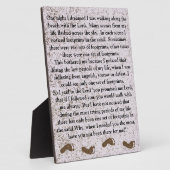 One night I dreamed I was walking along the
beach with the Lord. Many scenes from my
life flashed across the sky. In each scene I
noticed footprints in the sand. Sometimes
there were two sets of footprints, other times
there was one set of footprints.
This bothered me because I noticed that
during the low periods of my life, when I was
suffering from anguish, sorrow or defeat, I
could see only one set of footprints.
So I said to the Lord, you promised me Lord,
that if I followed you, you would walk with
me always. But I have noticed that
during the most trying periods of my life
there has only been one set of footprints in
the sand. Why, when I needed you the most,
have you not been there for me?